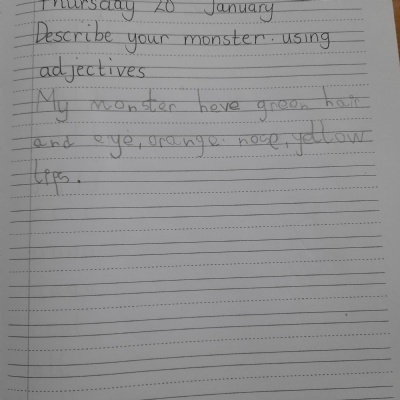 Thursday 20 January
Describe your monster using
adjectives
My monster heve green hair
and eye, orange noce, yellow
lips.